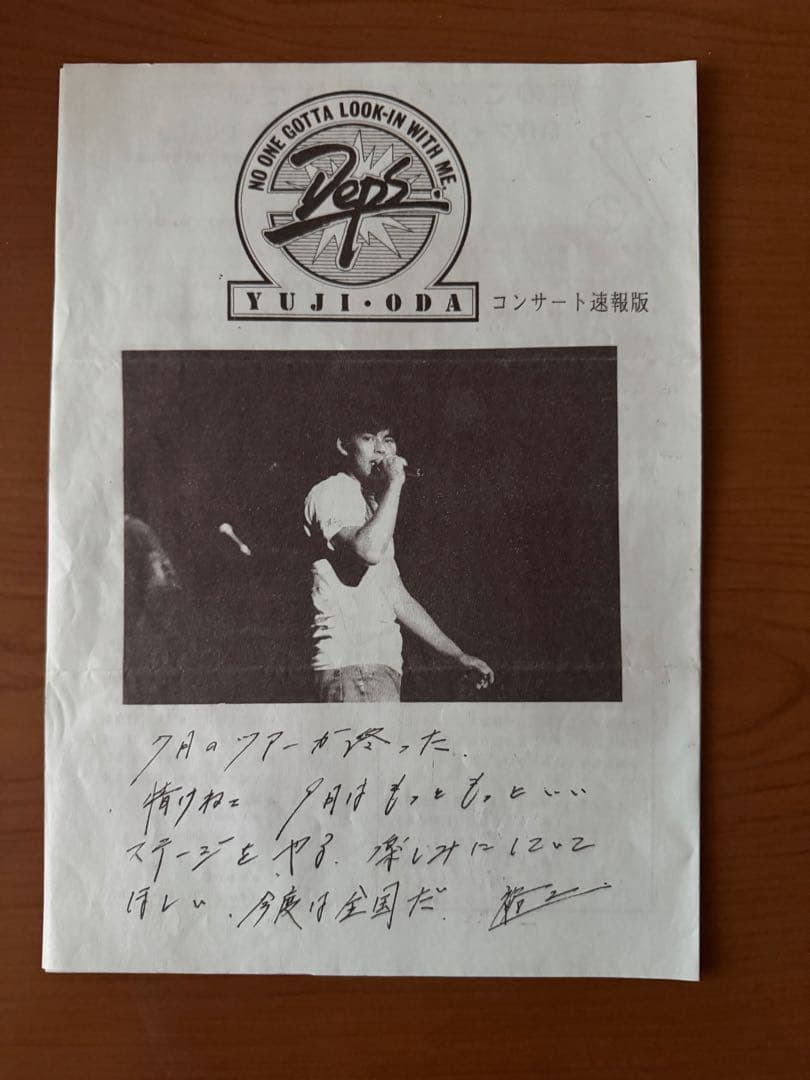 NO ONE GOTTA LOOK-IN WITH ME.
Deps.
YUJI・ODA
コンサート速報版
7月のツアーが終った.
情けねェ 9月はもっともっといい
ステージをやる. 楽しみにしていて
ほしい. 今度は全国だ. 裕二